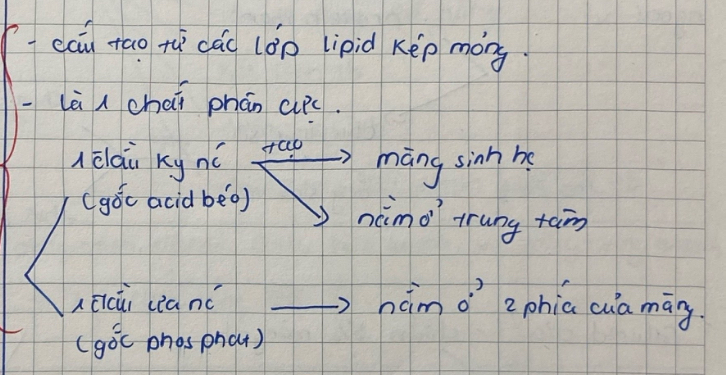 - cấu tạo từ các lớp lipid kép mỏng.
- Là 1 chất phân cực.
1 đầu kỵ nc tạo → màng sinh hc
(gốc acid béo) nằm ở trung tâm
1 đầu ưa nc → nằm ở 2 phía của màng.
(gốc phosphat)